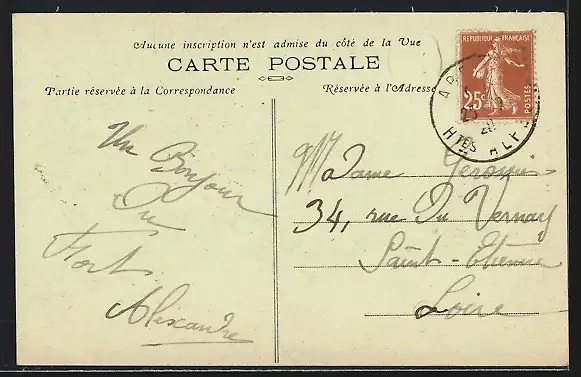 Aucune inscription n'est admise du côté de la Vue
CARTE POSTALE
Partie réservée à la Correspondance
Réservée à l'Adresse
REPUBLIQUE FRANÇAISE
25c
POSTES
Htes ALPES
Un Bonjour
Du
Fort
Alexandre
Madame
34, rue Du Vernay
Saint-Etienne
Loire